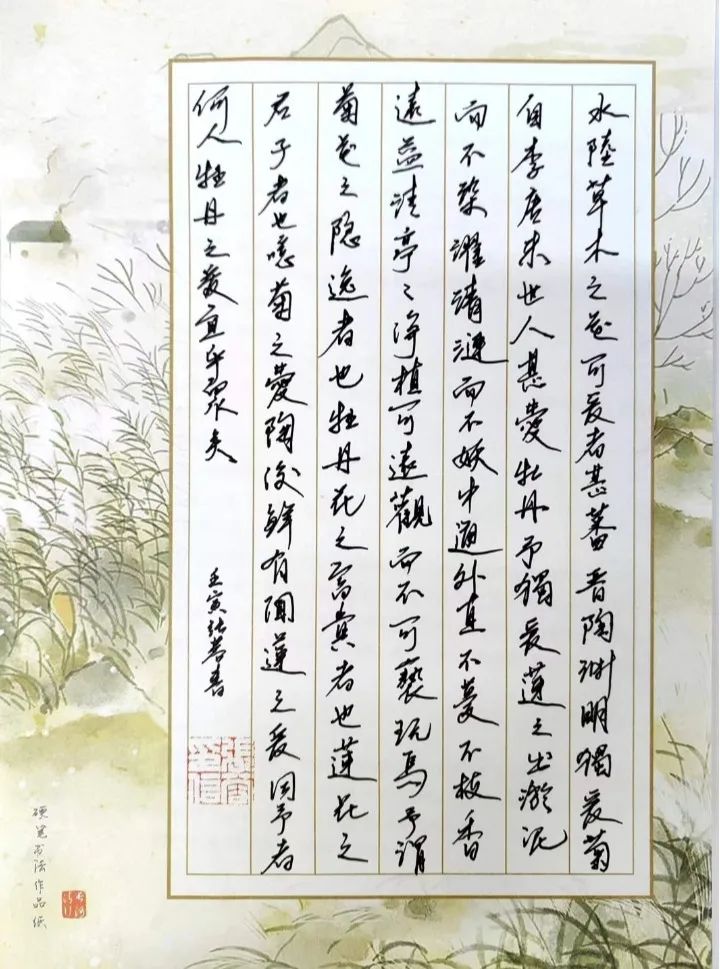 水陸草木之花可爱者甚蕃晋陶渊明獨爱菊
自李唐来世人甚愛牡丹予獨爱蓮之出淤泥
而不染濯清漣而不妖中通外直不蔓不枝香
遠益清亭〻净植可遠觀而不可亵玩焉予謂
菊花之隐逸者也牡丹花之富貴者也蓮花之
君子者也噫菊之愛陶後鲜有聞蓮之爱同予者
何人牡丹之愛宜乎眾矣
壬寅張善書
硬笔书法作品纸